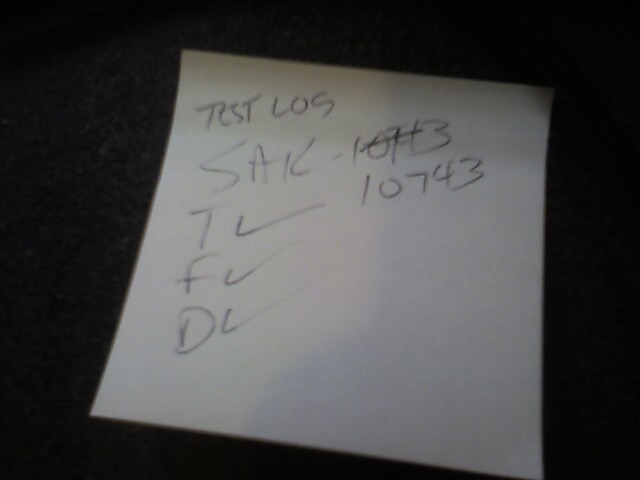 TEST LOG
SAK-10743
10743
T ✓
F ✓
D ✓